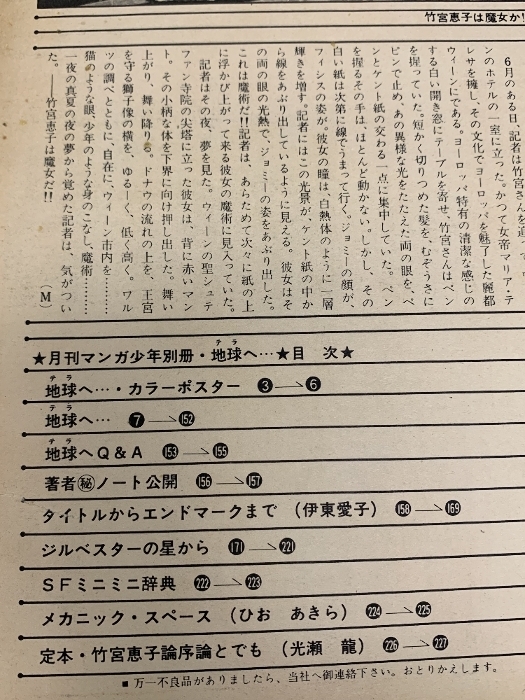 竹宮恵子は魔女か!
6月のある日、記者は竹宮さんを追って、
ンのホテルの一室に立った。かつて女帝マリア・テ
レサを擁し、その文化でヨーロッパを魅了した麗都
ウィーンにである。ヨーロッパ特有の清潔な感じの
する白い開き窓にテーブルを寄せ、竹宮さんはペン
を握っていた。短か、切りつめた髪を、むぞうさに
ピンで止め、あの異様な光をたたえた両の眼を、ペ
ンとケント紙の交わる一点に集中していた。ペン
を握るその手は、ほとんど動かない。しかし、その
白い紙は次第に線でうまって行く。ジョミーの顔が、
フィシスの姿が、彼女の瞳は、白熱体のように一層
輝きを増す。記者にはこの光景が、ケント紙の中か
ら線をあぶり出しているように見える。彼女はそ
の両の眼の光熱で、ジョミーの姿をあぶり出した。
これは魔術だ!!記者は、あらためて次々に紙の上
に浮かび上がって来る彼女の魔術に見入っていた。
記者はその夜、夢を見た。ウィーンの聖シュテ
ファン寺院の尖塔に立った彼女は、背に赤いマン
ト。その小柄な体を下界に向け押し出した。舞い
上がり、舞い降りる。ドナウの流れの上を、王宮
を守る獅子像の横を、ゆるーく、低く高く。ワル
ツの調べとともに、自在に、ウィーン市内を……
猫のような眼、少年のような身のこなし、魔術……
一夜の真夏の夜の夢から覚めた記者は、気がつい
た。――竹宮恵子は魔女だ!!
(M)
★月刊マンガ少年別冊・地球へ…★目 次★
地球へ…・カラーポスター ❸―→❻
地球へ… ❼―→152
地球へQ&A 153―→155
著者㊙ノート公開 156―→157
タイトルからエンドマークまで (伊東愛子) 158―→169
ジルベスターの星から 171―→221
SFミニミニ辞典 222―→223
メカニック・スペース (ひお あきら) 224―→225
定本・竹宮恵子論序論とでも (光瀬 龍) 226―→227
■万一不良品がありましたら、当社へ御連絡下さい。おとりかえします。